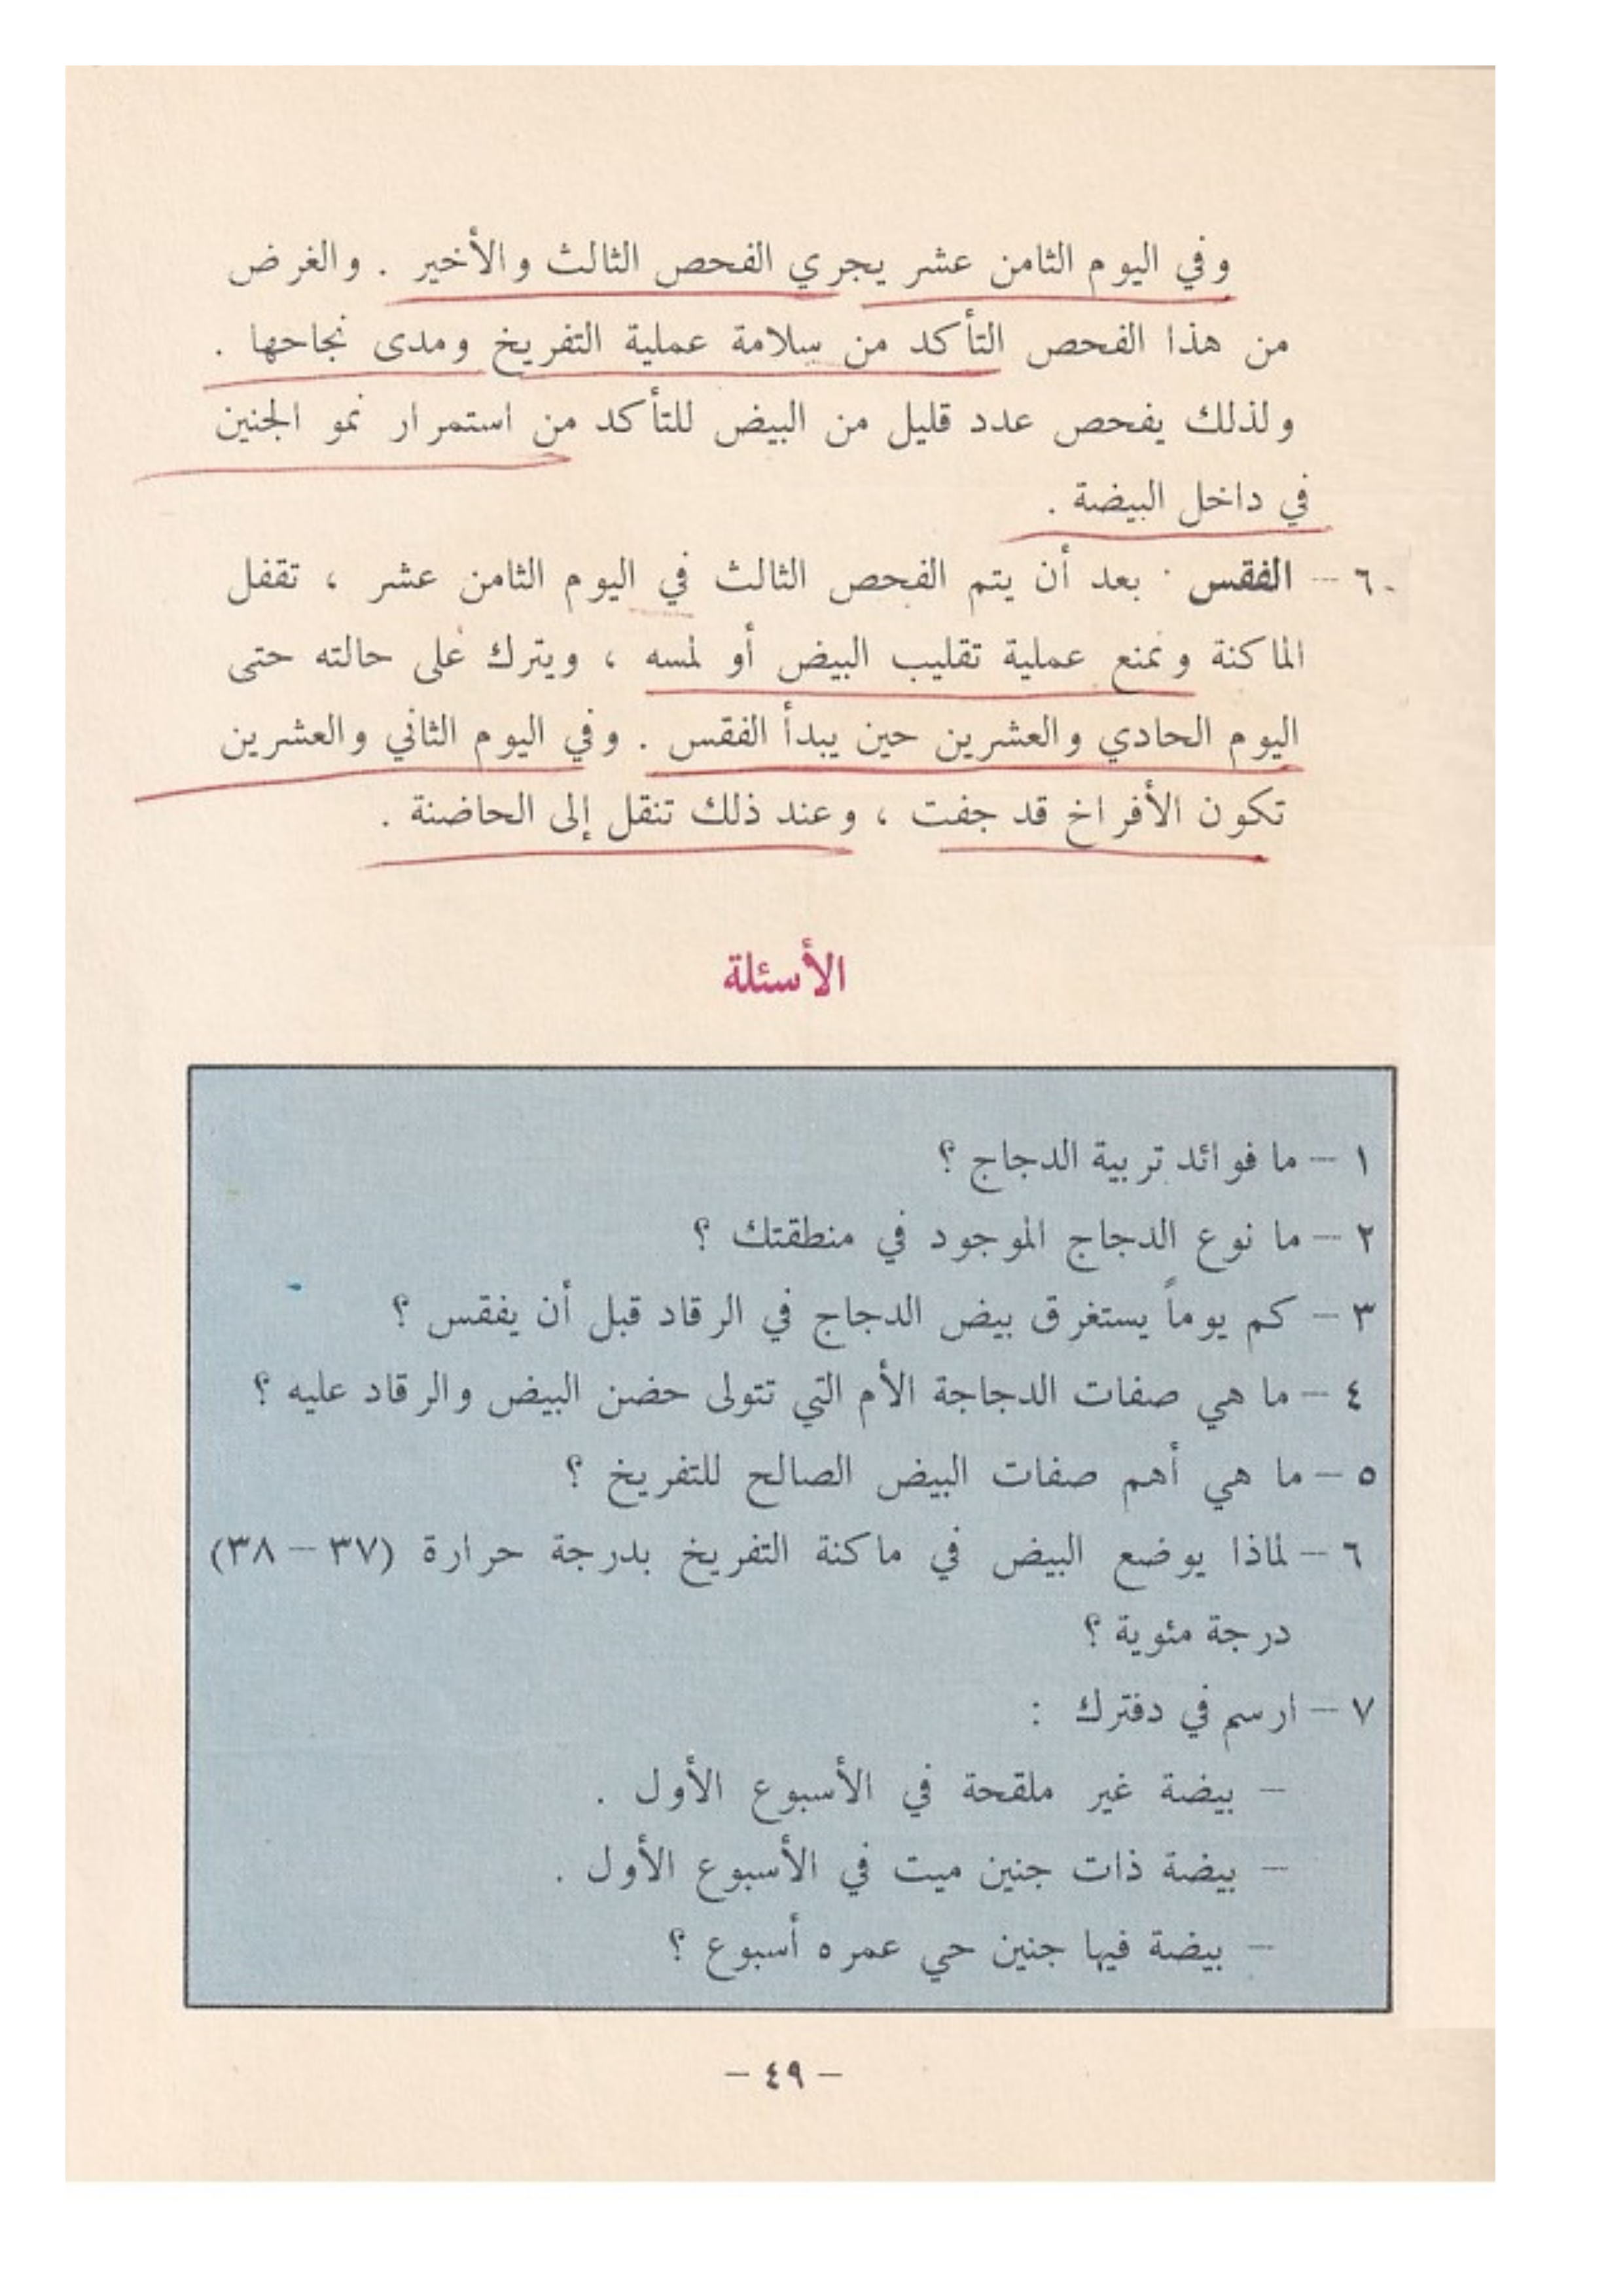 وفي اليوم الثامن عشر يجري الفحص الثالث والأخير . والغرض
من هذا الفحص التأكد من سلامة عملية التفريخ ومدى نجاحها .
ولذلك يفحص عدد قليل من البيض للتأكد من استمرار نمو الجنين
في داخل البيضة .
٦ – الفقس · بعد أن يتم الفحص الثالث في اليوم الثامن عشر ، تقفل
الماكنة وتمنع عملية تقليب البيض أو لمسه ، ويترك على حالته حتى
اليوم الحادي والعشرين حين يبدأ الفقس . وفي اليوم الثاني والعشرين
تكون الأفراخ قد جفت ، وعند ذلك تنقل إلى الحاضنة .
الأسئلة
١ – ما فوائد تربية الدجاج ؟
٢ – ما نوع الدجاج الموجود في منطقتك ؟
٣ – كم يوماً يستغرق بيض الدجاج في الرقاد قبل أن يفقس ؟
٤ – ما هي صفات الدجاجة الأم التي تتولى حضن البيض والرقاد عليه ؟
٥ – ما هي أهم صفات البيض الصالح للتفريخ ؟
٦ – لماذا يوضع البيض في ماكنة التفريخ بدرجة حرارة (٣٧ – ٣٨)
درجة مئوية ؟
٧ – ارسم في دفترك :
– بيضة غير ملقحة في الأسبوع الأول .
– بيضة ذات جنين ميت في الأسبوع الأول .
– بيضة فيها جنين حي عمره أسبوع ؟
– ٤٩ –